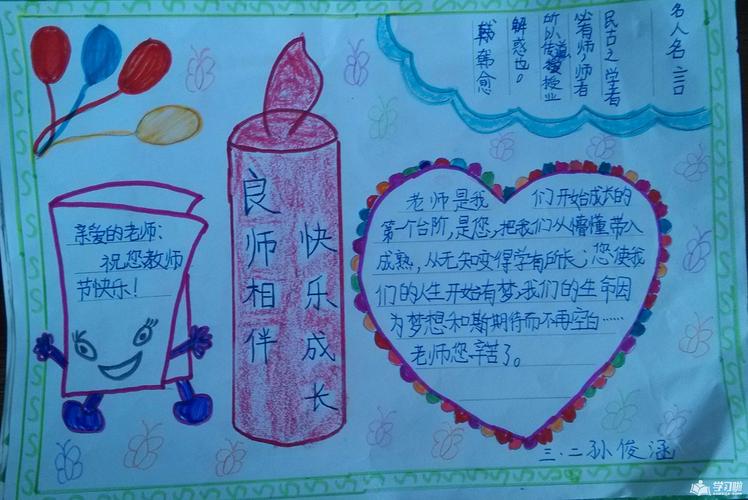 名人名言
民古之学者
必有师,师者
所以传道授业
解惑也。
韩愈
亲爱的老师:
祝您教师
节快乐!
良师相伴
快乐成长
老师是我们开始成长的
第一个台阶,是您,把我们从懵懂带入
成熟,从无知变得学有所长;您使我
们的人生开始有梦,我们的生命因
为梦想和斯期待而不再空白……
老师您辛苦了。
三.二孙俊涵
学习啦